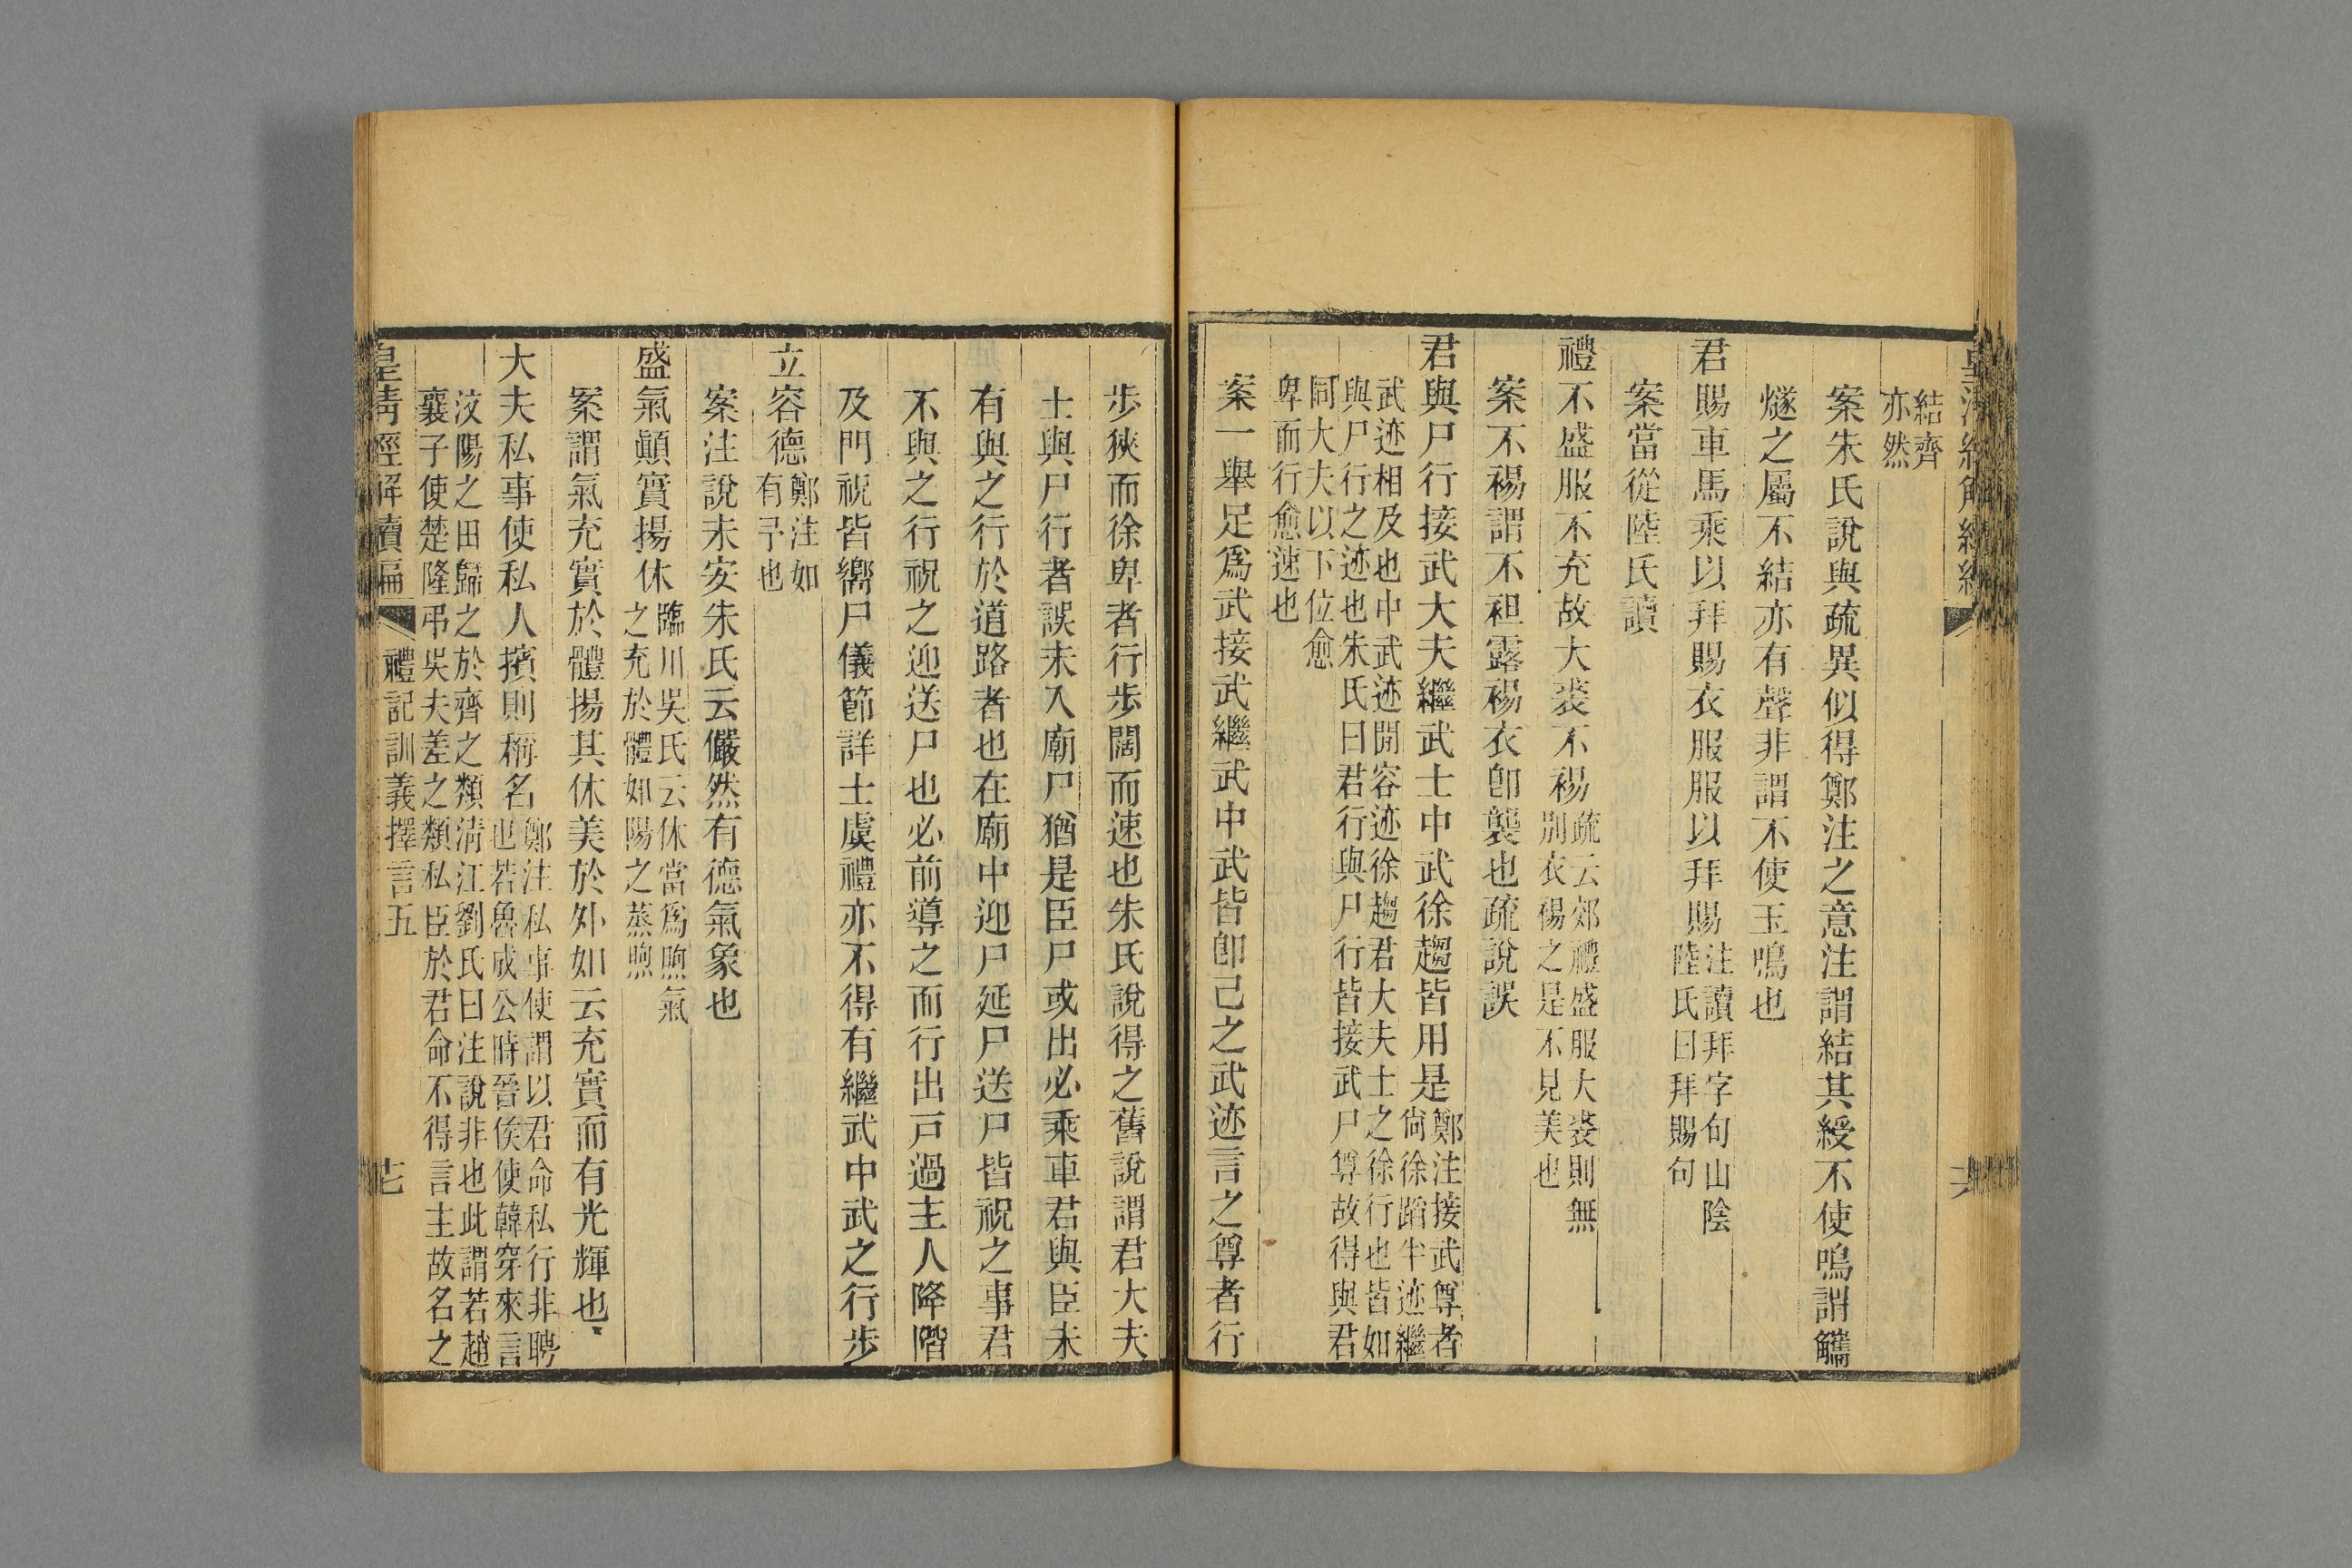 結齊
亦然
案朱氏說與疏異似得鄭注之意注謂結其綬不使鳴謂觿
燧之屬不結亦有聲非謂不使玉鳴也
君賜車馬乘以拜賜衣服服以拜賜
注讀拜字句山陰
陸氏曰拜賜句
案當從陸氏讀
禮不盛服不充故大裘不裼
疏云郊禮盛服大裘則無
別衣裼之是不見美也
案不裼謂不袒露裼衣卽襲也疏說誤
君與尸行接武大夫繼武士中武徐趨皆用是
鄭注接武尊者
尙徐蹈半迹繼
武迹相及也中武迹閒容迹徐趨君大夫士之徐行也皆如
與尸行之迹也朱氏曰君行與尸行皆接武尸尊故得與君
同大夫以下位愈
卑而行愈速也
案一舉足爲武接武繼武中武皆卽己之武迹言之尊者行
步狹而徐卑者行步闊而速也朱氏說得之舊說謂君大夫
士與尸行者誤未入廟尸猶是臣尸或出必乘車君與臣未
有與之行於道路者也在廟中迎尸延尸送尸皆祝之事君
不與之行祝之迎送尸也必前導之而行出戸過主人降階
及門祝皆嚮尸儀節詳士虞禮亦不得有繼武中武之行步
立容德
鄭注如
有予也
案注說未安朱氏云儼然有德氣象也
盛氣顚實揚休
臨川吳氏云休當爲煦氣
之充於體如陽之蒸煦
案謂氣充實於體揚其休美於外如云充實而有光輝也
大夫私事使私人擯則稱名
鄭注私事使謂以君命私行非聘
也若魯成公時晉侯使韓穿來言
汶陽之田歸之於齊之類淸江劉氏曰注說非也此謂若趙
襄子使楚隆弔吳夫差之類私臣於君命不得言主故名之
皇淸經解續編
禮記訓義擇言五